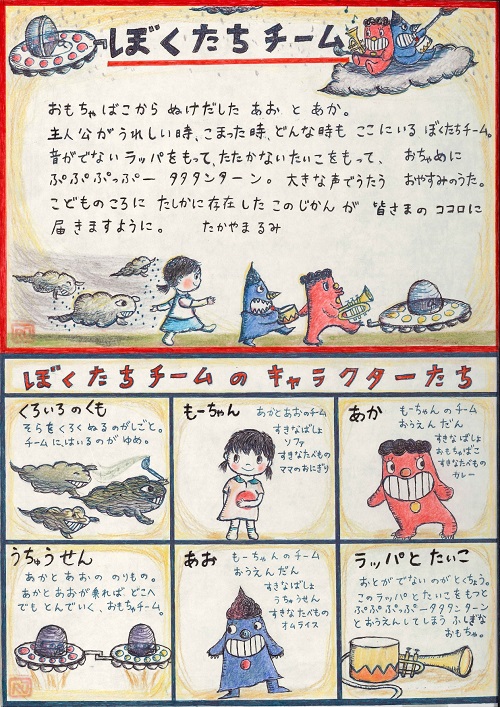 ぼくたちチーム
おもちゃばこから ぬけだした あお と あか。
主人公がうれしい時、こまった時、どんな時も ここにいる ぼくたちチーム。
音がでない ラッパをもって、たたかないたいこをもって、 おちゃめに
ぷぷぷぷっぷー タタタンターン。 大きな声でうたう おやすみのうた。
こどものころに たしかに存在した このじかん が 皆さまの ココロに
届きますように。 たかやまるみ
ぼくたちチームのキャラクターたち
くろいろのくも
そらをくろく ぬるのがしごと。
チームにはいるのが ゆめ。
もーちゃん
あかとあおのチーム
すきなばしょ
ソファ
すきなたべもの
ママのおにぎり
あか
もーちゃんのチーム
おうえんだん
すきなばしょ
おもちゃばこ
すきなたべもの
カレー
うちゅうせん
あかとあおの のりもの。
あかとあおが乗れば どこへ
でも とんでいく、おもちゃチーム。
あお
もーちゃんのチーム
おうえんだん
すきなばしょ
うちゅうせん
すきなたべもの
オムライス
ラッパと たいこ
おとがでない のが とくちょう。
このラッパと たいこを もつと
ぷぷぷぷっぷー タタタンターン
とおうえんしてしまう ふしぎな
おもちゃ。